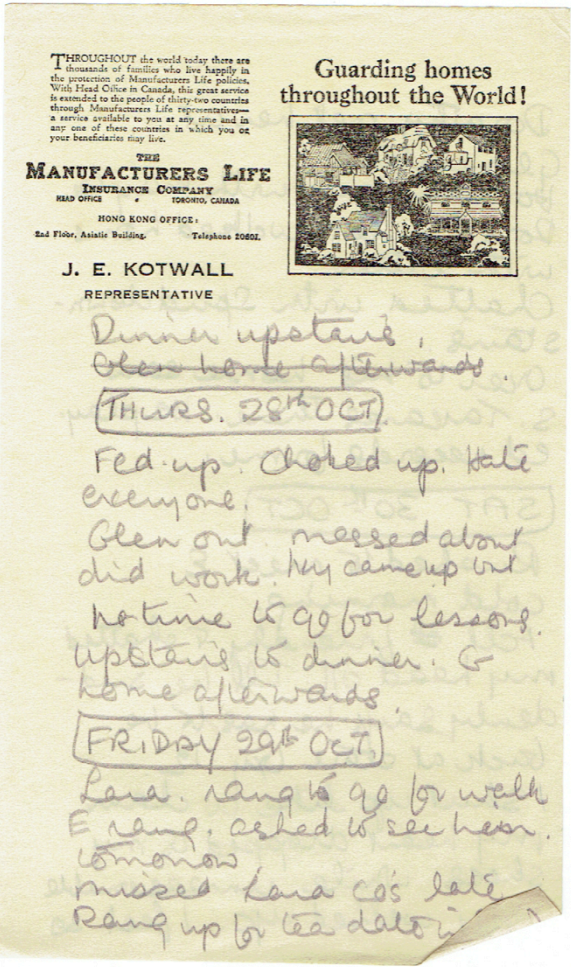 THROUGHOUT the world today there are
thousands of families who live happily in
the protection of Manufacturers Life policies.
With Head Office in Canada, this great service
is extended to the people of thirty-two countries
through Manufacturers Life representatives—
a service available to you at any time and in
any one of these countries in which you or
your beneficiaries may live.
THE
MANUFACTURERS LIFE
INSURANCE COMPANY
HEAD OFFICE • TORONTO, CANADA
HONG KONG OFFICE:
2nd Floor, Asiatic Building. Telephone 20601.
J. E. KOTWALL
REPRESENTATIVE
Guarding homes
throughout the World!
Dinner upstairs.
Glen home afterwards.
THURS. 28th OCT
Fed-up. Choked up. Hate
everyone.
Glen out. messed about
did work. Ny came up but
no time to go for lessons.
Upstairs to dinner. G
home afterwards.
FRIDAY 29th OCT.
Lara. rang to go for walk
E rang. asked to see him.
tomorrow
missed Lara cos late
Rang up for tea date